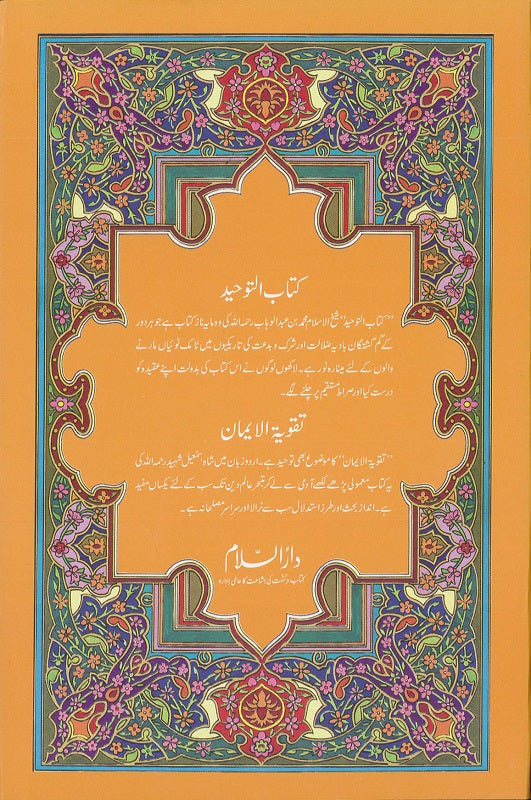 کتاب التوحید
”کتاب التوحید“ شیخ الاسلام محمد بن عبدالوہاب رحمہ اللہ کی وہ مایہ ناز کتاب ہے جو ہر دور
کے گم گشتگان بادیہ ضلالت اور شرک و بدعت کی تاریکیوں میں ٹامک ٹوئیاں مارنے
والوں کے لئے مینارہ نور ہے۔ لاکھوں لوگوں نے اس کتاب کی بدولت اپنے عقیدہ کو
درست کیا اور صراط مستقیم پر چلنے لگے۔
تقویۃ الایمان
”تقویۃ الایمان“ کا موضوع بھی توحید ہے۔ اردو زبان میں شاہ اسمٰعیل شہید رحمہ اللہ کی
یہ کتاب معمولی پڑھے لکھے آدمی سے لے کر متبحر عالم دین تک سب کے لئے یکساں مفید
ہے۔ انداز بحث اور طرز استدلال سب سے نرالا اور سراسر مصلحانہ ہے۔
دارُالسّلام
کتاب و سنت کی اشاعت کا عالمی ادارہ